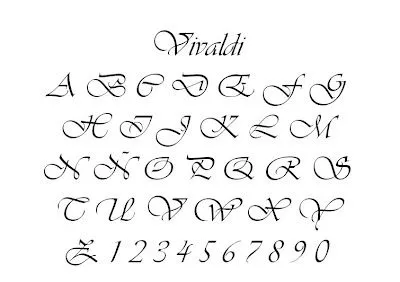 Vivaldi
A B C D E F G
H I J K L M
N Ñ O P Q R S
T U V W X Y
Z 1 2 3 4 5 6 7 8 9 0